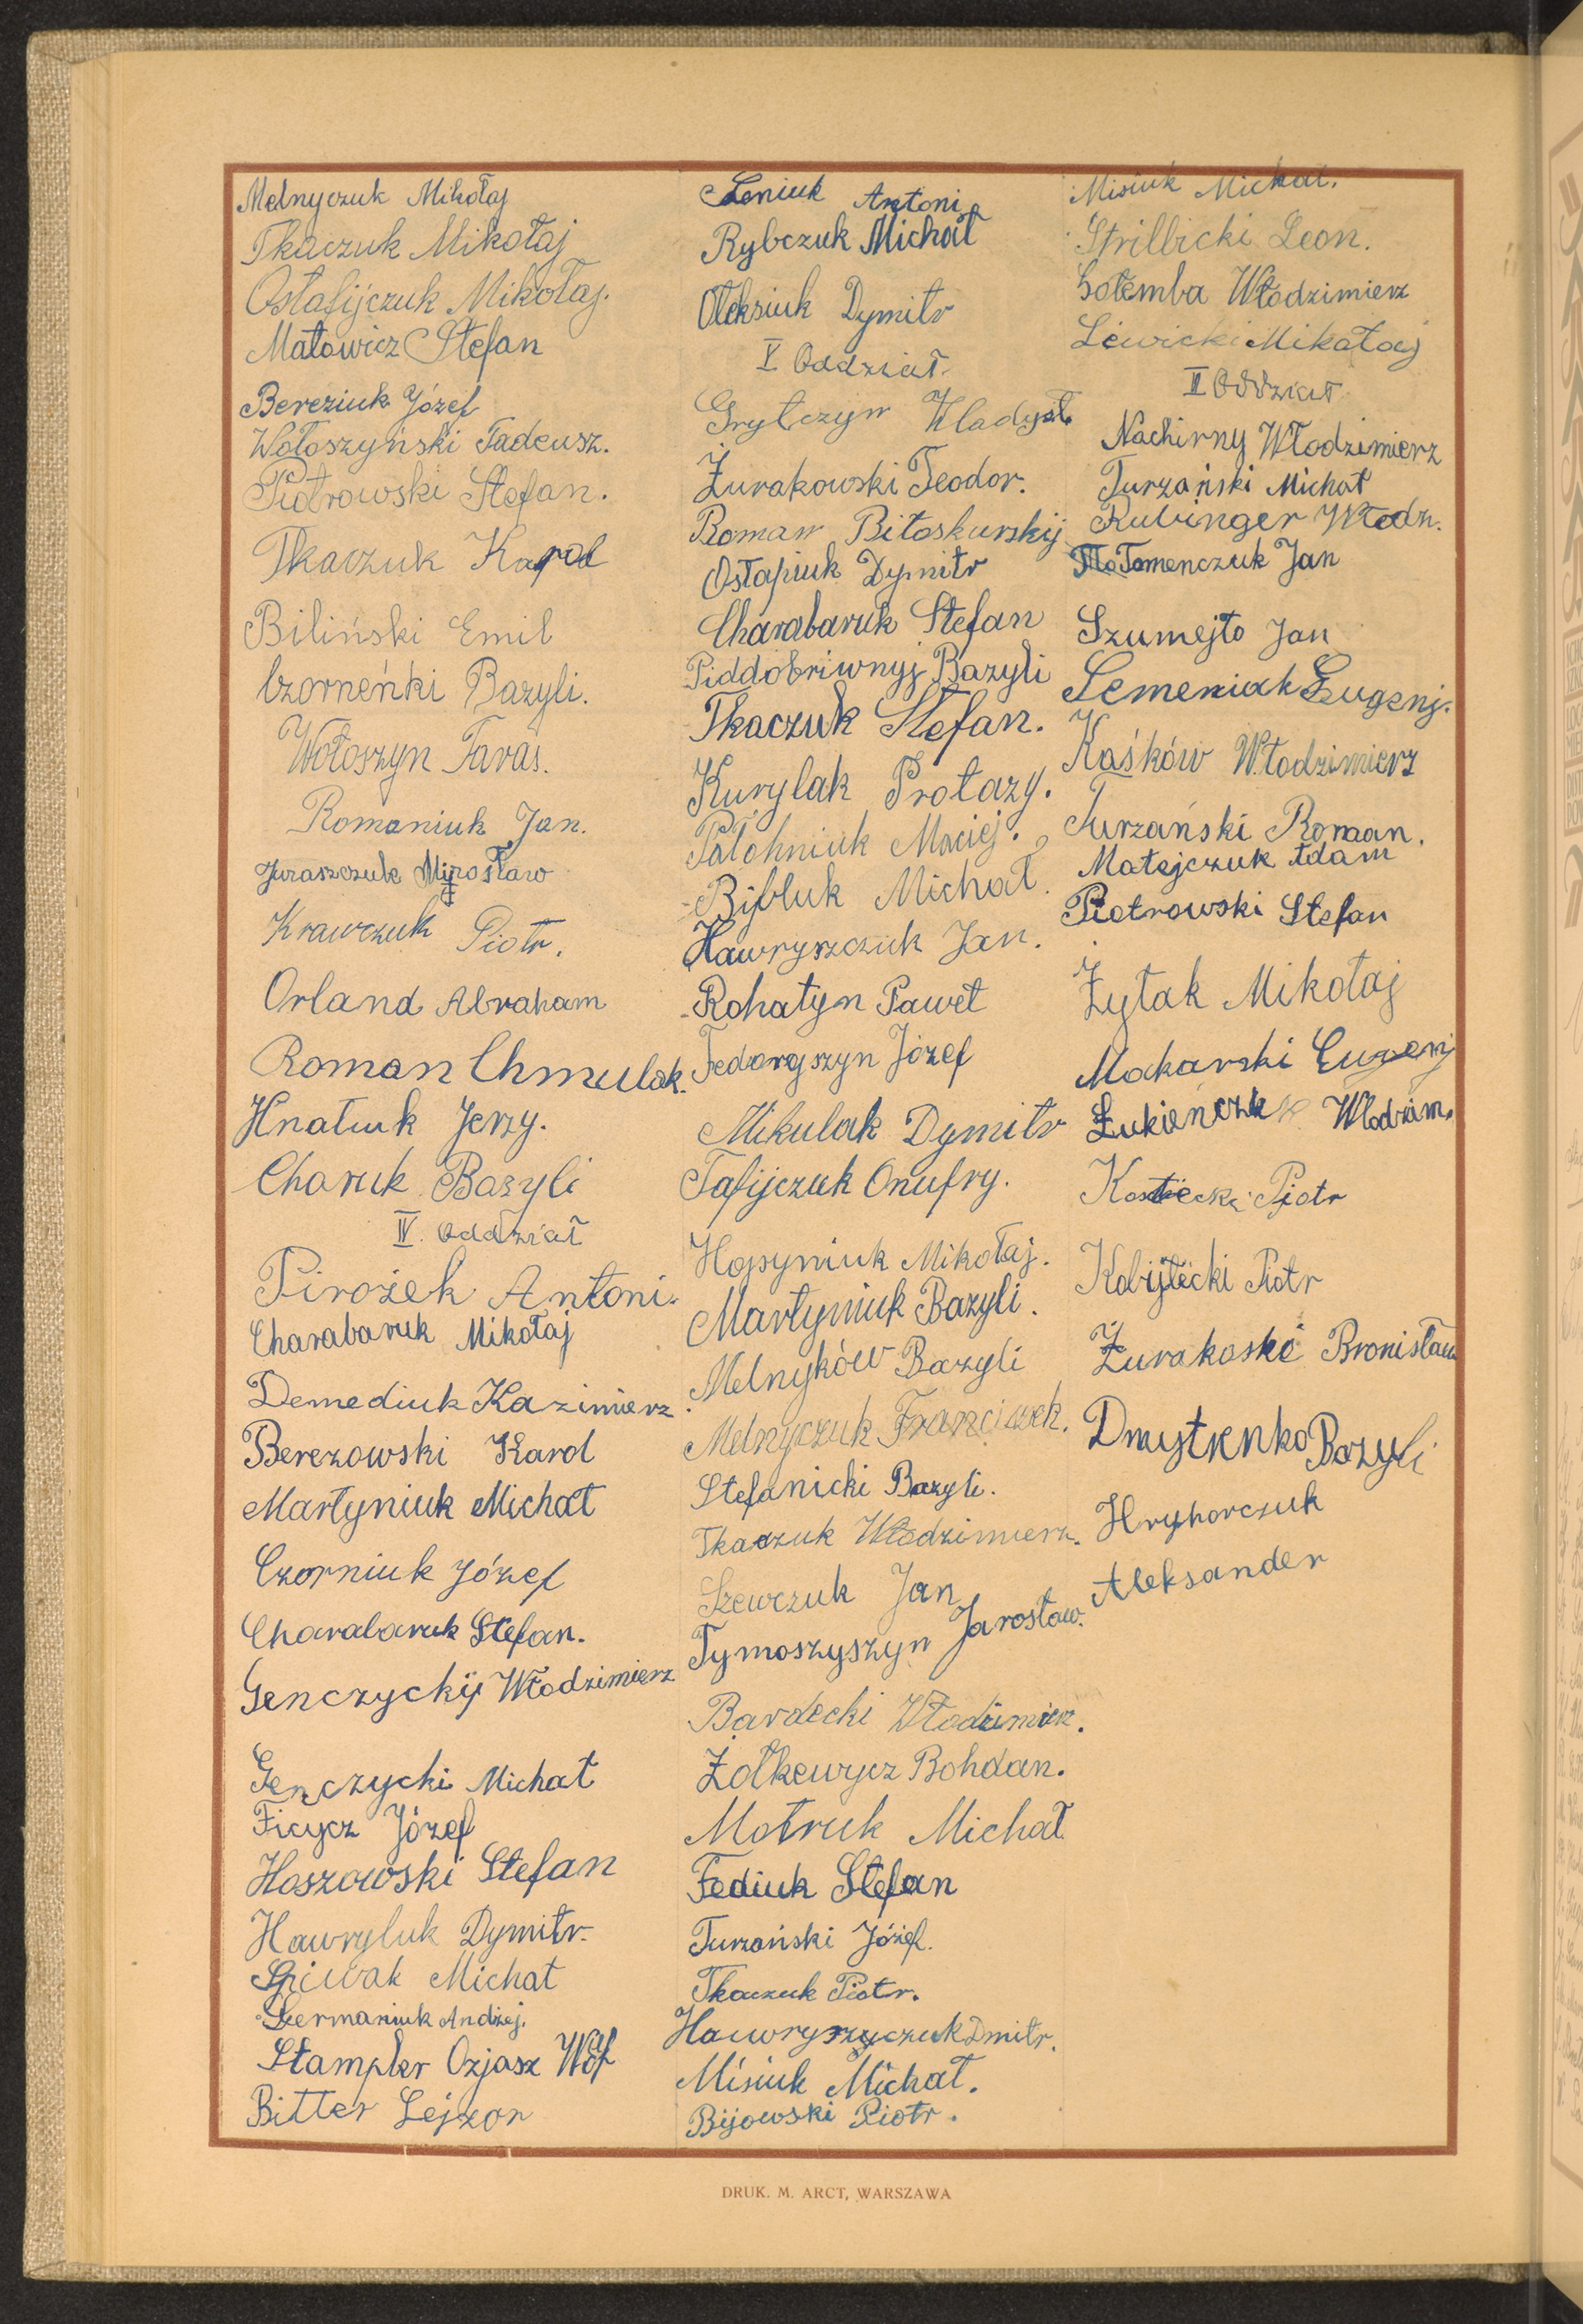 Melnyczuk Mikołaj
Tkaczuk Mikołaj
Ostafijczuk Mikołaj.
Małowicz Stefan
Bereziuk Józef
Wołoszyński Tadeusz.
Piotrowski Stefan.
Tkaczuk Karol
Biliński Emil
Czorneńki Bazyli.
Wołoszyn Taras.
Romaniuk Jan.
Juraszczuk Mirosław
Krawczuk Piotr.
Orland Abraham
Roman Chmulak.
Hnatiuk Jerzy.
Charuk Bazyli
IV. Oddział
Pirożek Antoni.
Charabaruk Mikołaj
Demediuk Kazimierz.
Berezowski Karol
Martyniuk Michał
Czorniuk Józef
Charabaruk Stefan.
Genczyckij Włodzimierz
Genczycki Michał
Ficycz Józef
Hoszowski Stefan
Hawryluk Dymitr.
Spiwak Michał
Germaniuk Andżej.
Stampler Ozjasz Wolf
Bitter Lejzor
Leniuk Antoni
Rybczuk Michał
Oleksiuk Dymitr
V Oddział.
Grytczyn Władysł.
Żurakowski Teodor.
Roman Biłoskurskij
Ostapiuk Dymitr
Charabaruk Stefan
Piddobriwnyj Bazyli
Tkaczuk Stefan.
Kurylak Protazy.
Palohniuk Maciej.
Bifluk Michał.
Hawryszczuk Jan.
Rohatyn Paweł
Fedoryszyn Józef
Mikulak Dymitr
Tafijczuk Onufry.
Hopyniuk Mikołaj.
Martyniuk Bazyli.
Melnyków Bazyli
Melnyczuk Franciszek.
Stefanicki Bazyli.
Tkaczuk Włodzimierz.
Szewczuk Jan
Tymoszyszyn Jarosław.
Bardecki Włodzimierz.
Żołkewycz Bohdan.
Motruk Michał
Fediuk Stefan
Turzański Józef.
Tkaczuk Piotr.
Hawryszczuk Dmitr.
Misiuk Michał.
Bijowski Piotr.
Misiuk Michał.
Strilbicki Leon.
Gołemba Włodzimierz
Lewicki Mikołaj
II Oddział
Nachirny Włodzimierz
Turzański Michał
Rubinger Włodz.
Jan
Szumejło Jan
Semeniuk Eugenj.
Kaśków Włodzimierz
Turzański Roman.
Matejczuk Adam
Piotrowski Stefan
Żytak Mikołaj
Mokarski Eugenj
Łukieńczuk Włodzim.
Kostecki Piotr
Kobyłecki Piotr
Żurakoski Bronisław
Dmytrenko Bazyli
Hryhorczuk
Aleksander
DRUK. M. ARCT, WARSZAWA